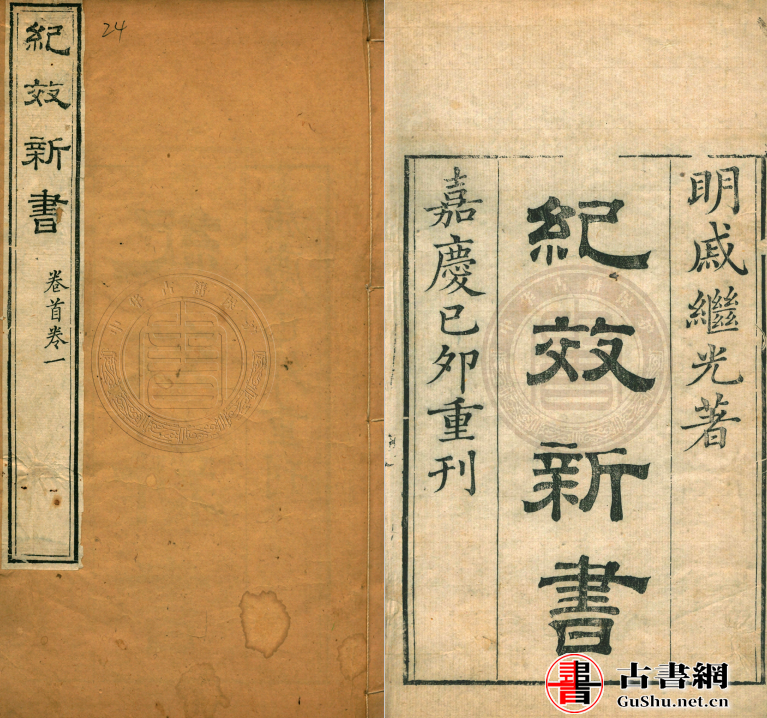 紀效新書
卷首卷一
24
明戚繼光著
紀效新書
嘉慶己卯重刊
書
古書網
GuShu.net.cn